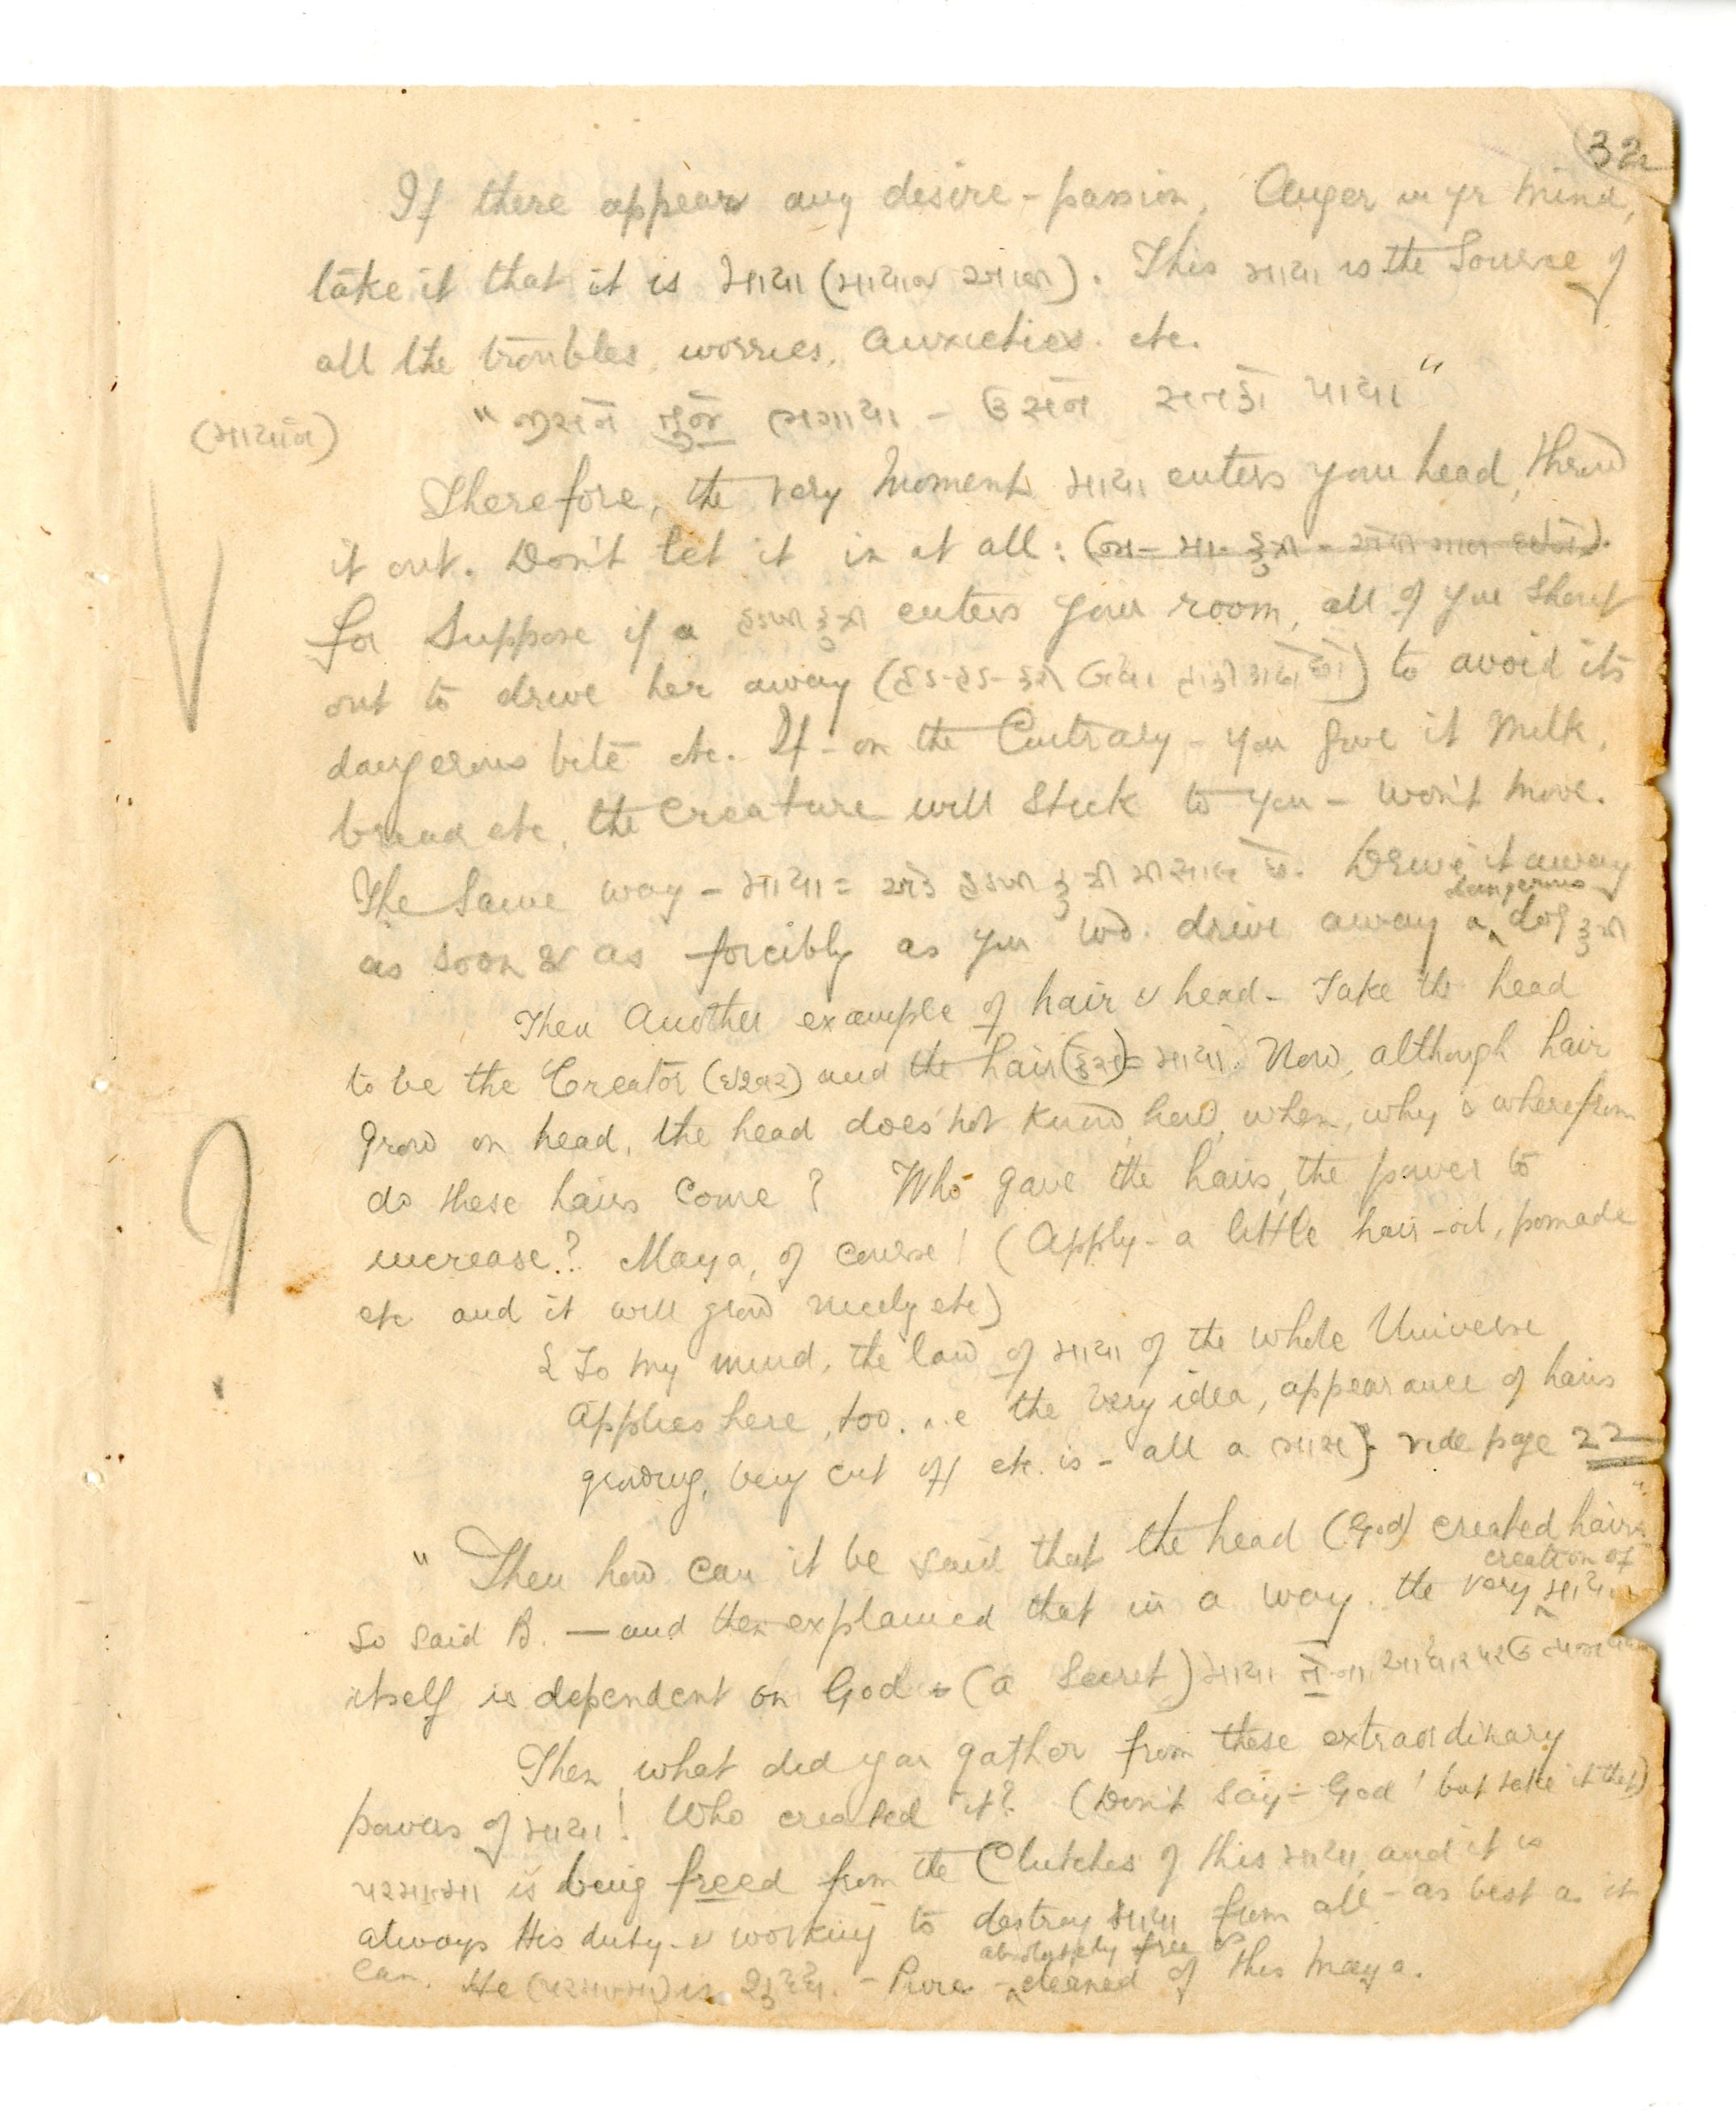 32
If there appear any desire-passion, Anger in yr mind,
take it that it is માયા (માયાજ). This માયા is the Source of
all the troubles, worries, anxieties. etc.
(માયાને)
" જીસને તુજે - ઉસને પાયા"
Therefore, the very moment માયા enters your head, throw
it out. Don't let it in at all:
for Suppose if a હડખ કુત્રી enters your room, all of you shout
out to drive her away (હડ-હડ-) to avoid its
dangerous bite etc. If - on the Contrary - you give it milk,
bread etc, the creature will stick to you - won't move.
The same way - માયા = એક હડખ કુત્રી મીસાલ છે. Drive it away
as soon & as forcibly as you wd. drive away a dangerous dog કુત્રી
Then another example of hair & head - Take the head
to be the Creator (ઇશ્વર) and the hair (કેસ) = માયા. Now, although hair
grow on head, the head does not know, how, when, why & wherefrom
do these hairs come? Who gave the hairs, the power to
increase? Maya, of course! (Apply - a little hair-oil, pomade
etc and it will grow nicely etc)
{To my mind, the law of માયા of the whole Universe
applies here, too. i.e the very idea, appearance of hairs
growing, being cut off etc. is - all a માયા}. vide page 22
" Then how can it be said that the head (God) created hairs"
So said B. — and then explained that in a way the very creation of માયા
itself is dependent on God - (a Secret) માયા તેના આધાર પર
Then what did you gather from these extraordinary
powers of માયા! Who created it? (Don't say - God! but take it that)
પરમાત્મા is being freed from the Clutches of this માયા, and it is
always His duty - & working to destroy માયા from all - as best as it
can. He (પરમાત્મા) is શુદ્ધ. - Pure - absolutely free & cleaned of this maya.